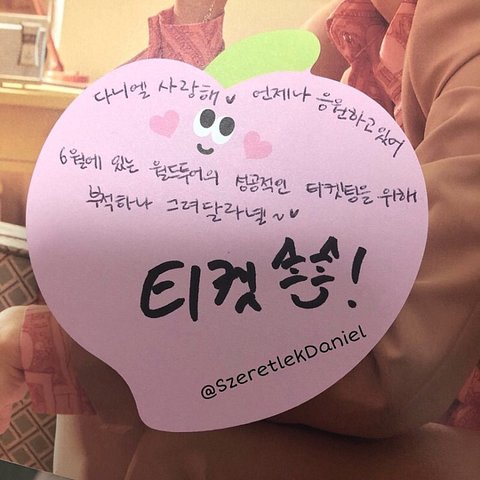 다니엘 사랑해 언제나 응원하고있어
6월에 있는 월드투어의 성공적인 티켓팅을 위해
부적하나 그려달라녤~
티켓 쑝쑝!
@SzeretlekDaniel